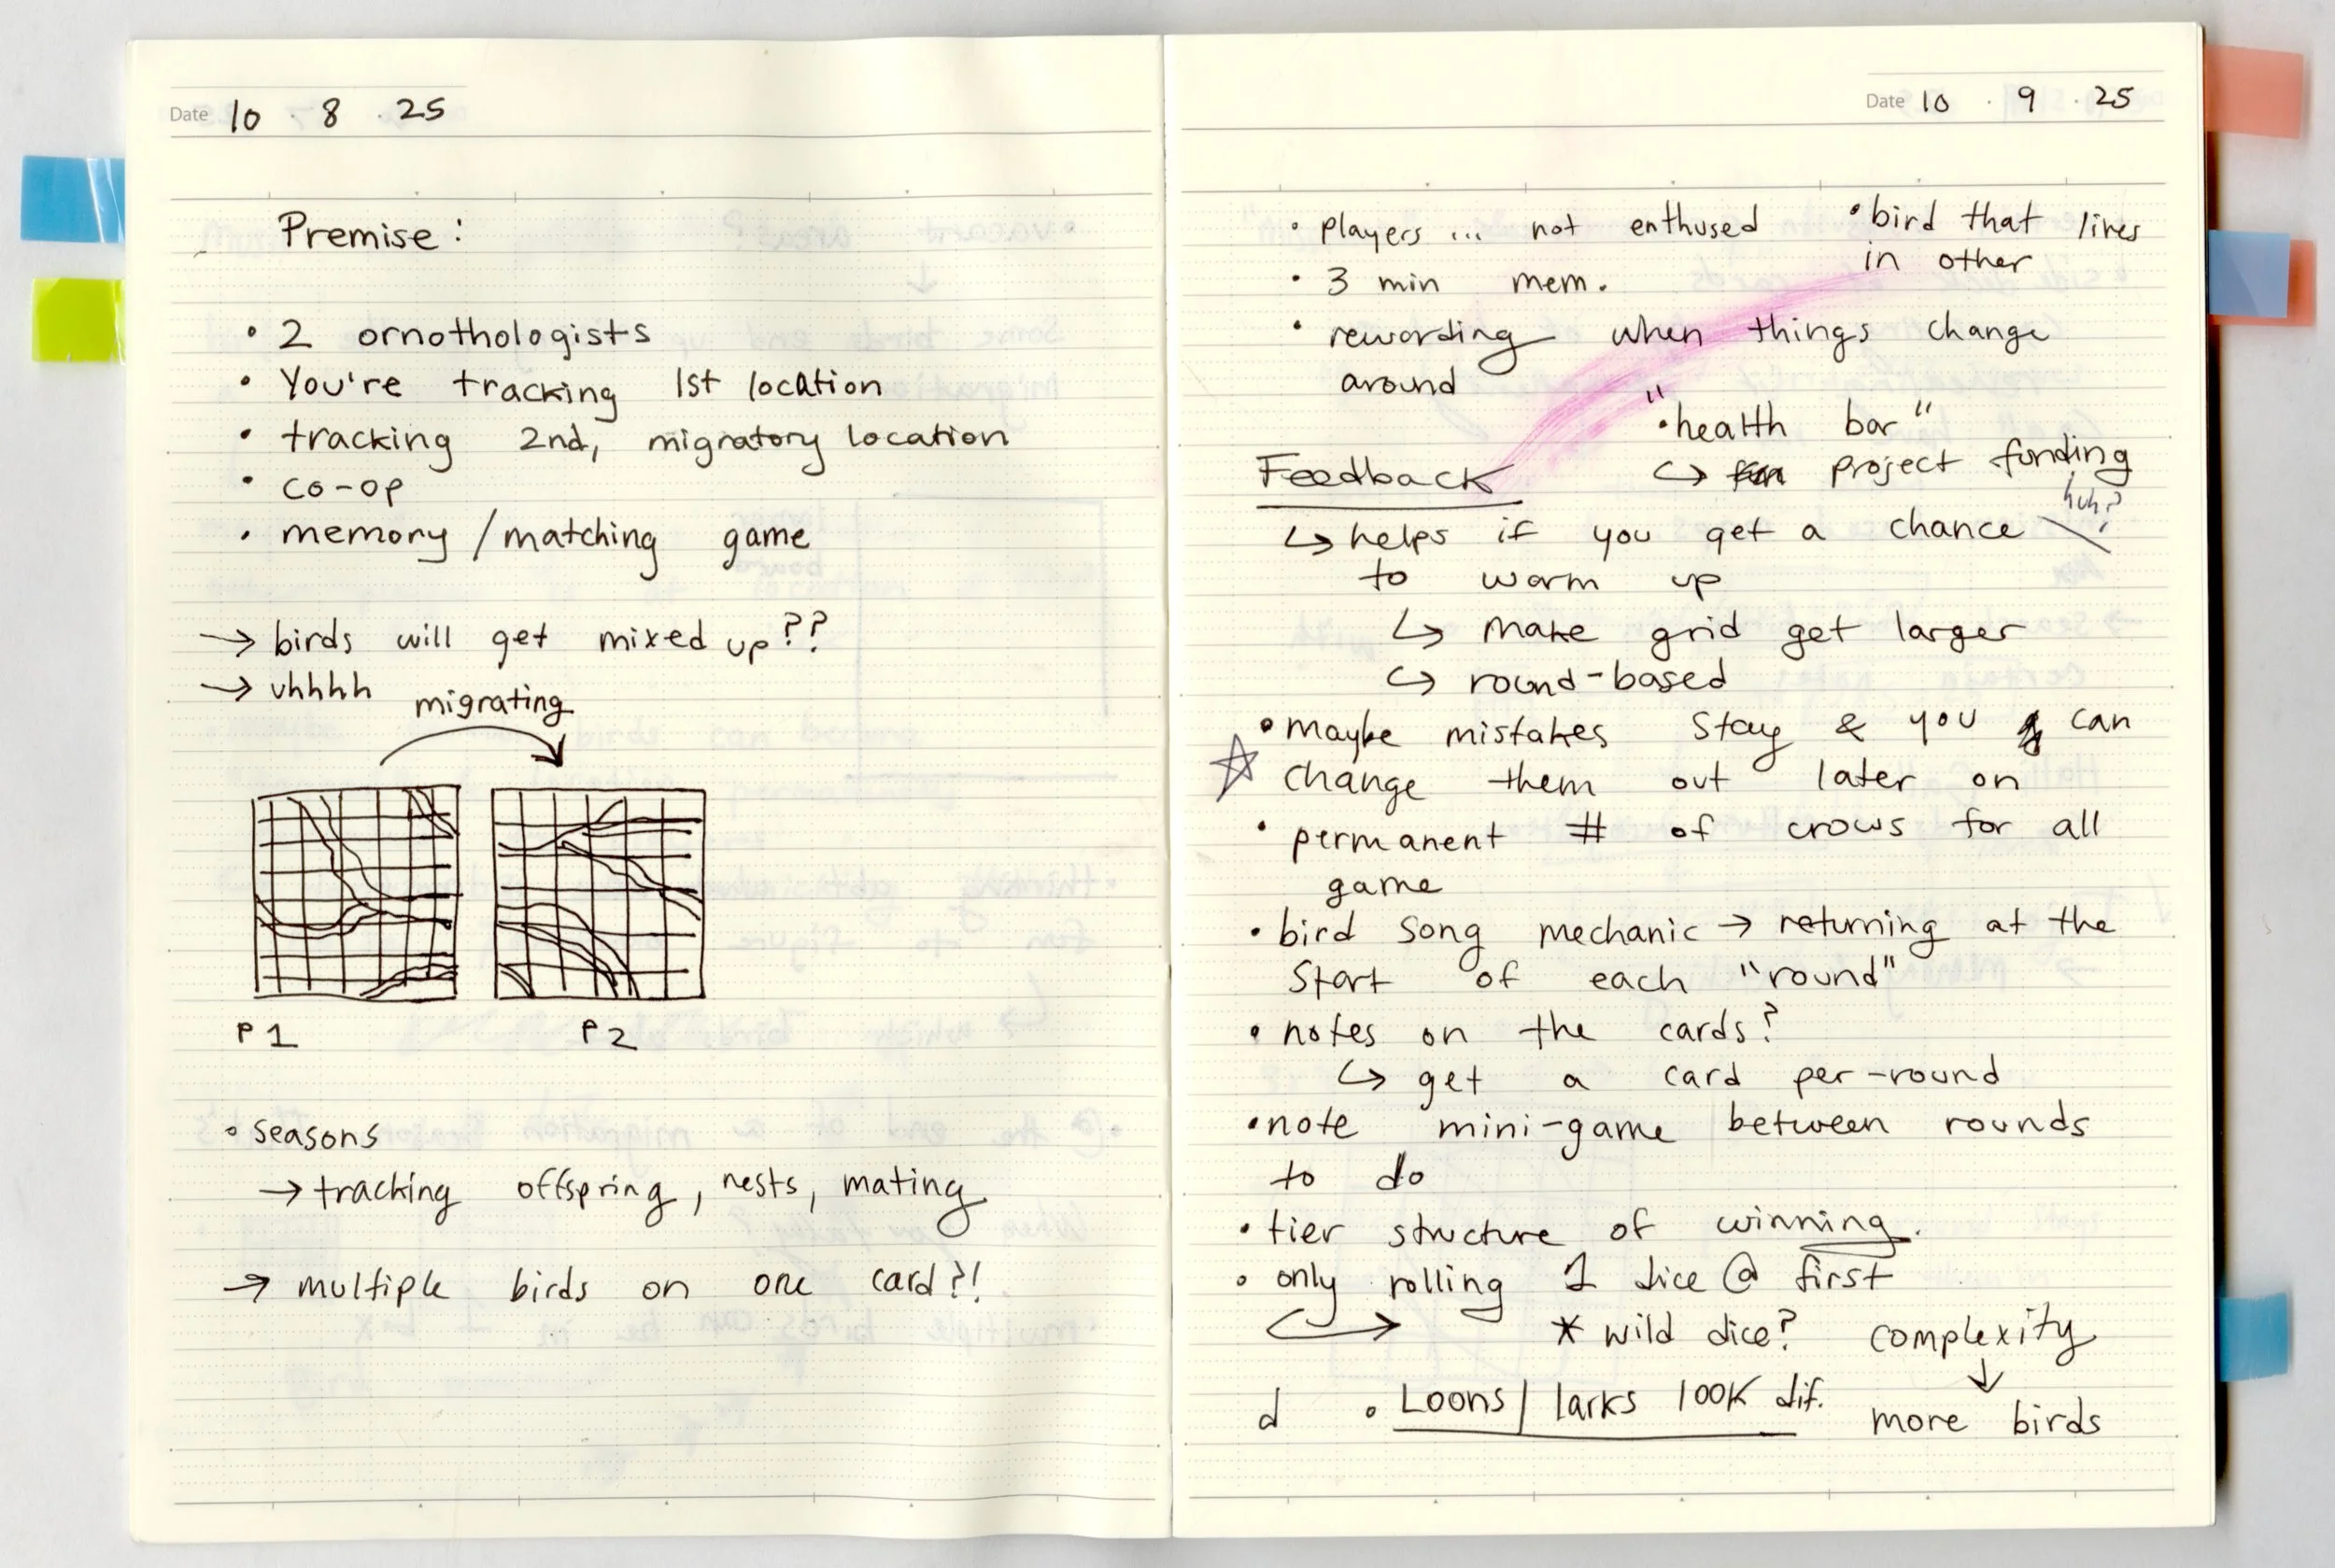 Date 10 . 8 . 25
Premise:
• 2 ornothologists
• You're tracking 1st location
• tracking 2nd, migratory location
• co-op
• memory/matching game
→ birds will get mixed up??
→ uhhhh
migrating
P1 P2
• seasons
→ tracking offspring, nests, mating
→ multiple birds on one card?!
Date 10 . 9 . 25
• players ... not enthused
• 3 min mem.
• rewarding when things change
around
• bird that lives
in other
"•health bar"
↪ project funding
huh?
Feedback
↪ helps if you get a chance
to warm up
↪ make grid get larger
↪ round-based
• maybe mistakes stay & you can
☆ change them out later on
• permanent # of crows for all
game
• bird song mechanic → returning at the
start of each "round"
• notes on the cards?
↪ get a card per-round
• note mini-game between rounds
to do
• tier structure of winning.
• only rolling 1 dice @ first
↪ * wild dice?
complexity
↓
more birds
d • Loons/larks 100K dif.